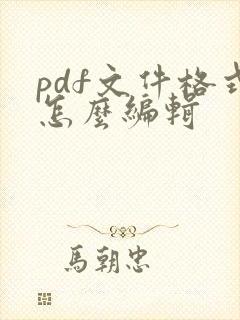 pdf文件格式
怎麼編輯
馬朝忠